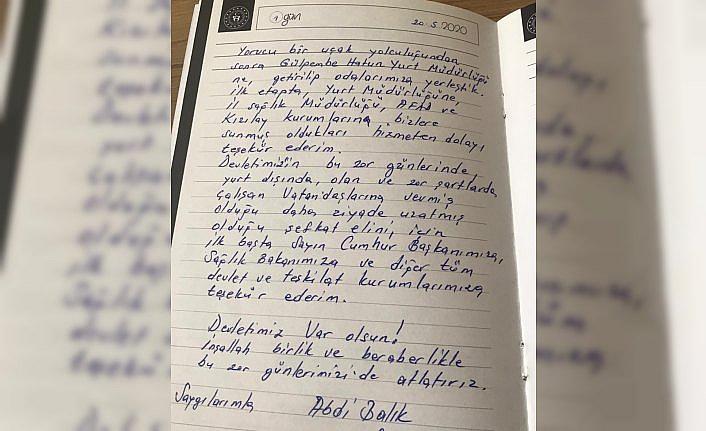 1 gün
20.5.2020
Yorucu bir uçak yolculuğundan
sonra Gülpembe Hatun Yurt Müdürlüğü
ne, getirilip odalarımıza yerleştik.
ilk etapta, Yurt Müdürlüğüne,
il sağlık Müdürlüğü, AFAD ve
Kızılay kurumlarına bizlere
sunmuş oldukları hizmeten dolayı
teşekür ederim.
Devletimizin bu zor günlerinde,
yurt dışında, olan ve zor şartlarda
çalışan Vatandaşlarına vermiş
olduğu daha ziyade uzatmış
olduğu şefkat elini, için
ilk başta Sayın Cumhur Başkanımıza,
Sağlık Bakanımıza ve diğer tüm
devlet ve teşkilat kurumlarımıza
teşekür ederim.
Devletimiz Var olsun!
inşallah birlik ve beraberlikle
bu zor günlerimizi'de atlatırız.
Saygılarımla Abdi Balık